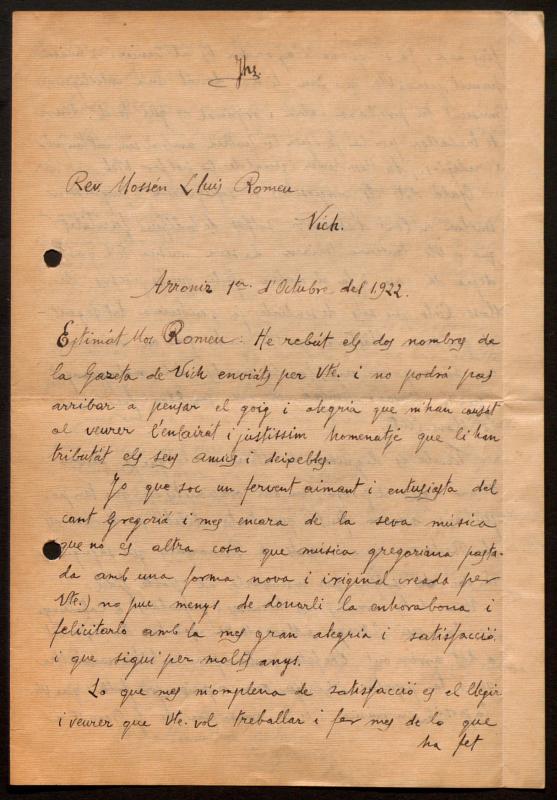 Jhs.
Rev. Mossén Lluis Romeu
Vich.
Arroniz 1er. d'Octubre del 1.922.
Estimát Mos. Romeu: He rebút els dos nombres de
la Gazeta de Vich enviats per Vté. i no podrá pas
arribar a pensar el goig i alegria que m'han causát
al veurer l'enlairát i justissim homenatje que li han
tributát els seus amics i deixebles.
Jo que soc un fervent aimant i entusiasta del
cant Gregoriá i mes encara de la seva música
que no es altra cosa que música gregoriana pasta-
da amb una forma nova i original creada per
Vté.) no puc menys de donarli la enhorabona i
felicitarlo amb la mes gran alegria i satisfacció
i que sigui per molts anys.
Lo que mes m'omplena de satisfacció es el llegir
i veurer que Vte. vol treballar i fer mes de lo que
ha fet